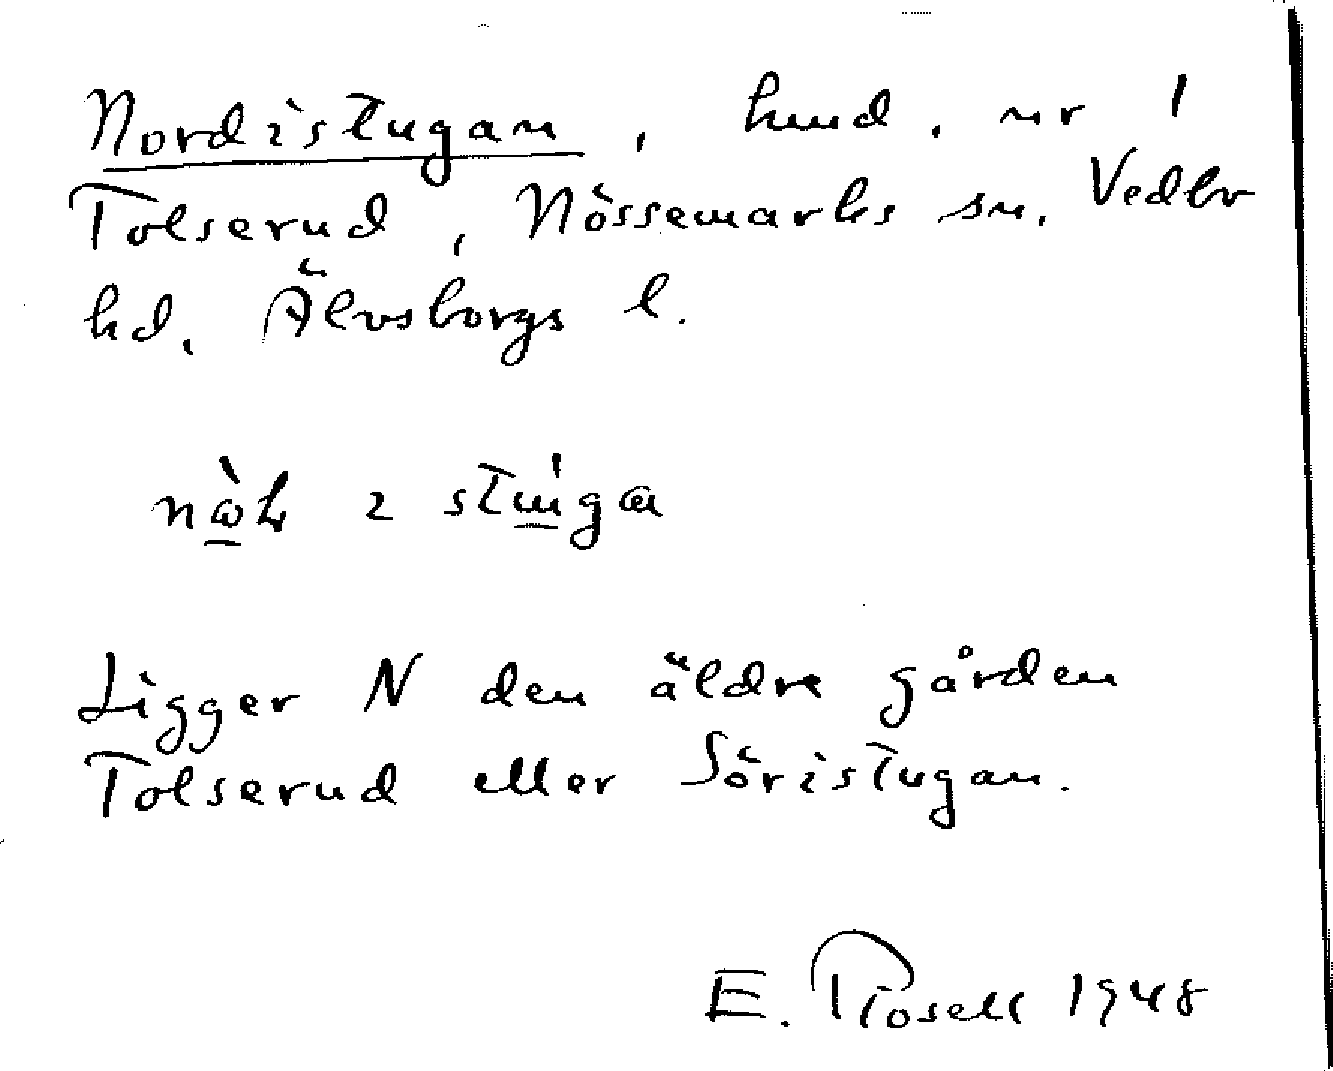 Nordistugan, hmd. nr 1
Tolserud, Nössemarks sn. Vedbo
hd. Älvsborgs l.
Ligger N den äldre gården
Tolserud eller Söristugan.
E. Rosell 1948